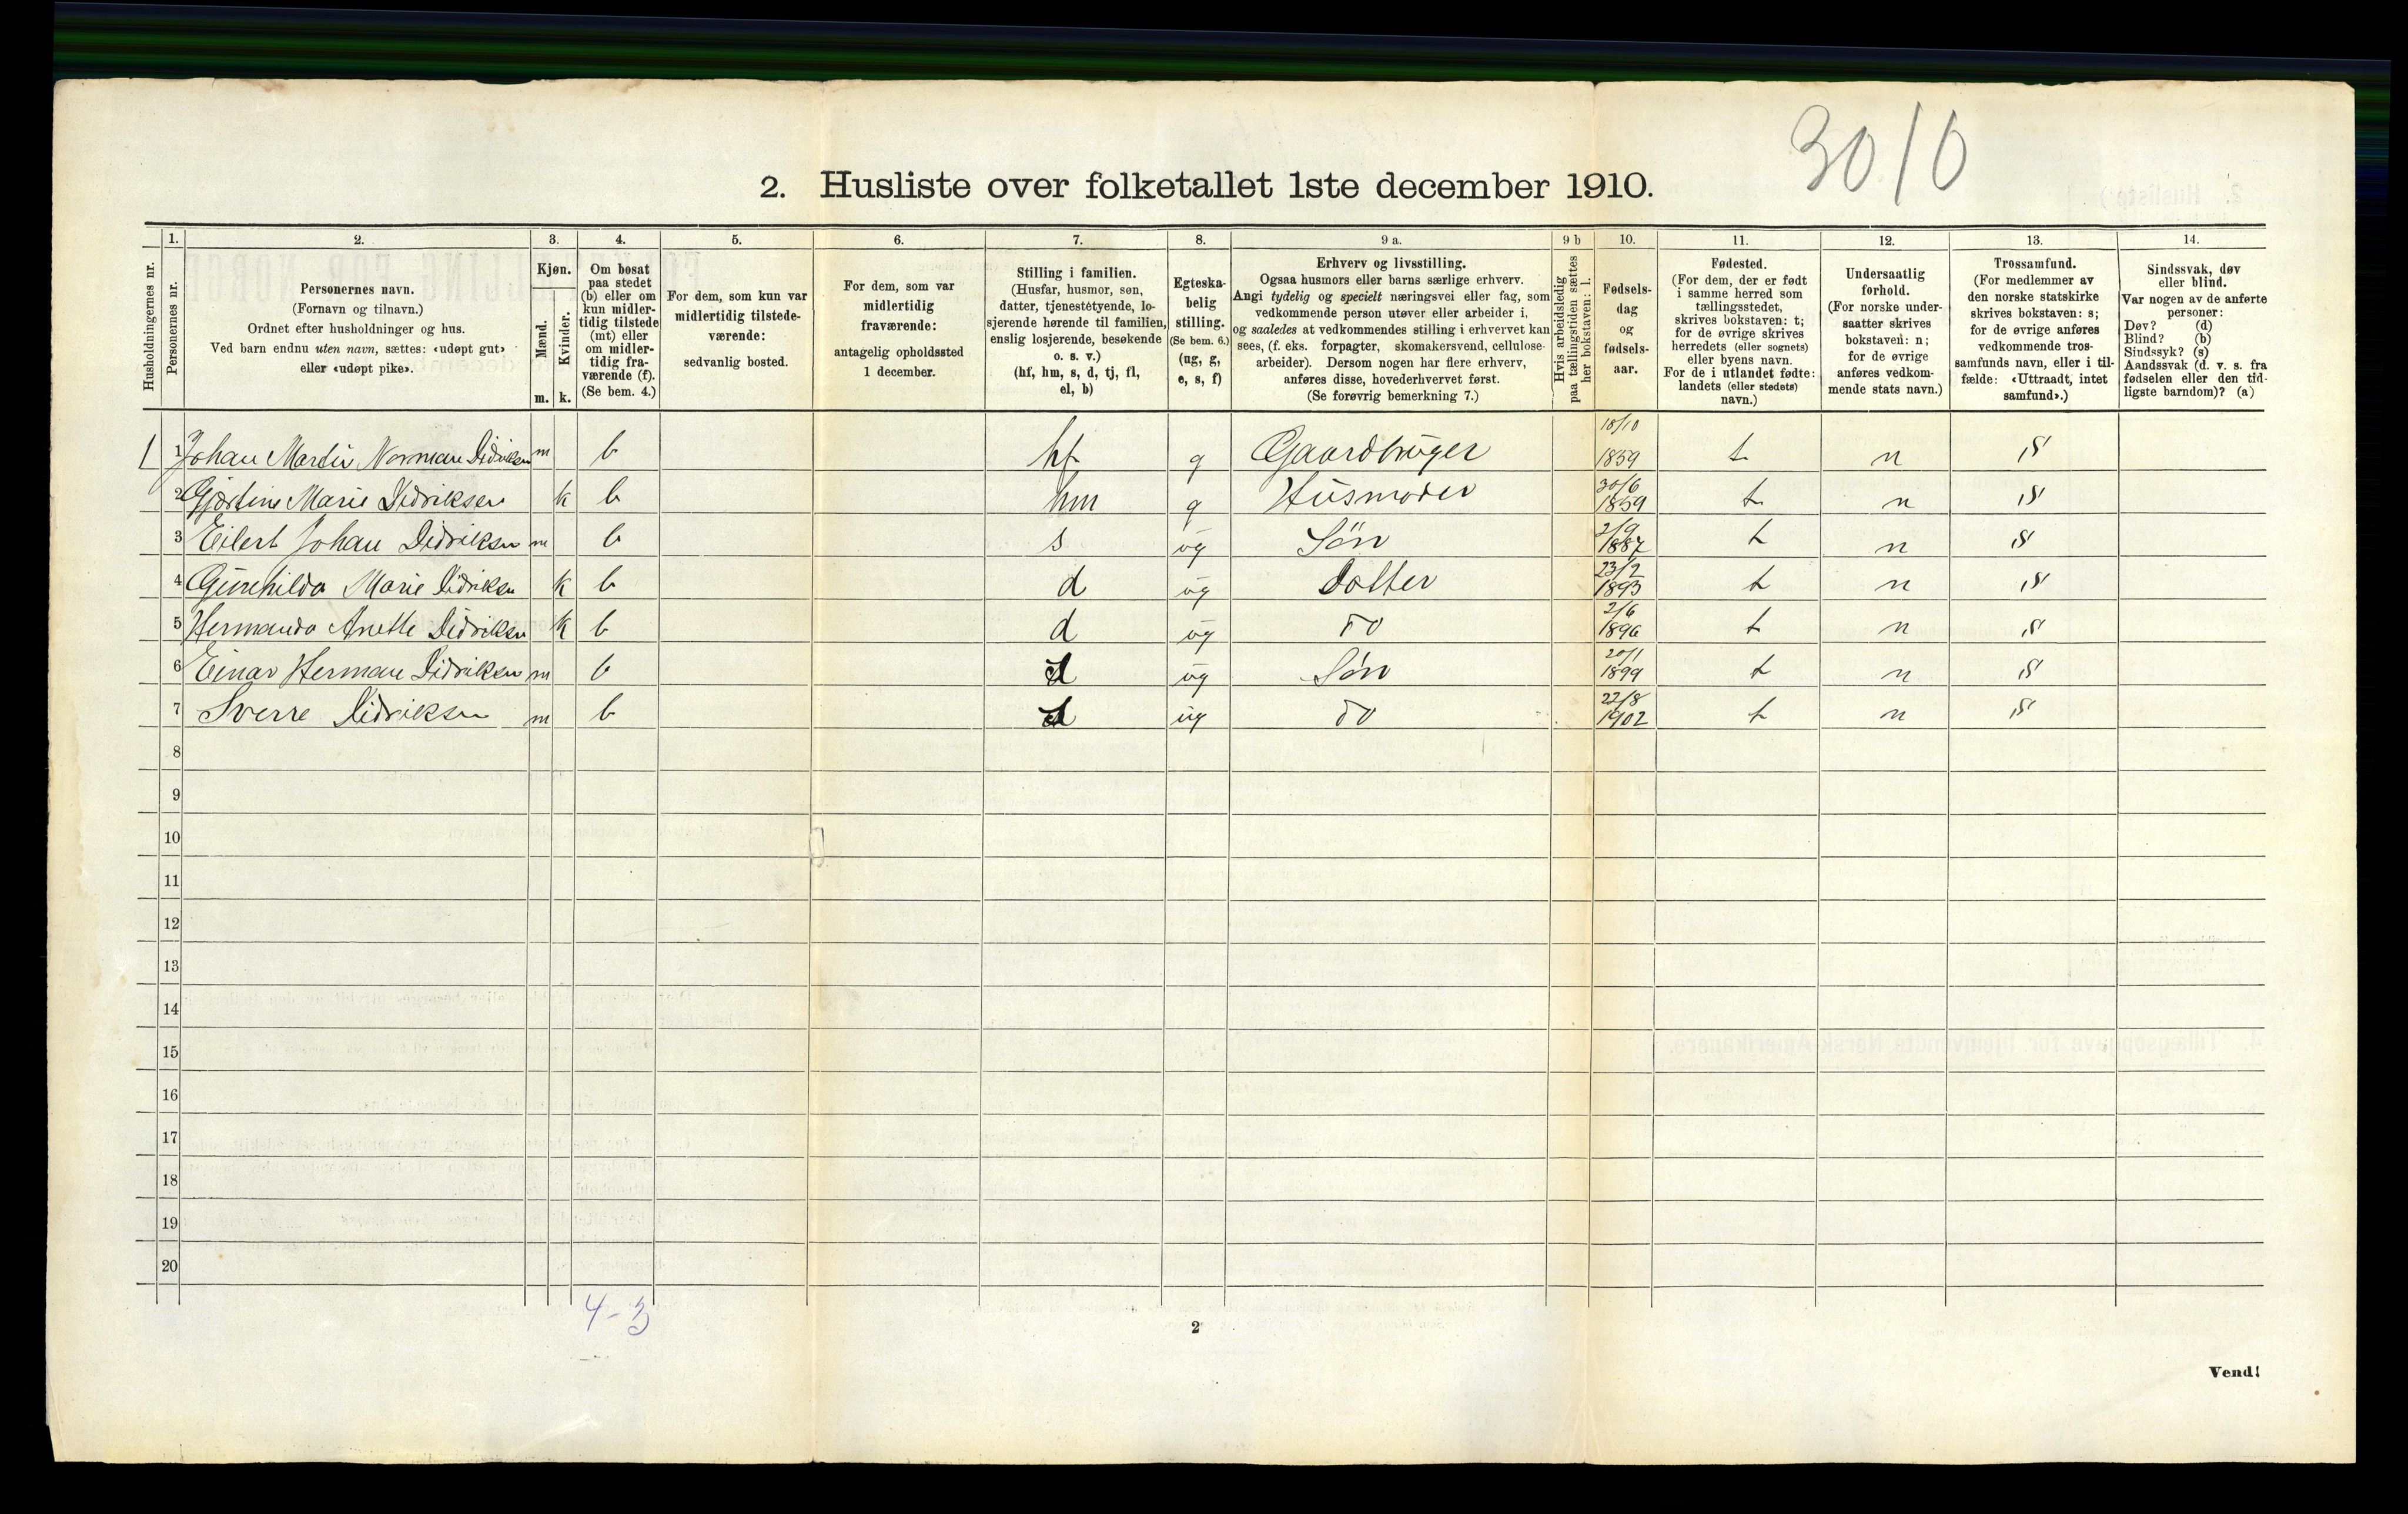 3010
2. Husliste over folketallet 1ste december 1910.
Husholdningernes nr.
1.
Personernes nr.
2.
Personernes navn.
(Fornavn og tilnavn.)
Ordnet efter husholdninger og hus.
Ved barn endnu uten navn, sættes: «udøpt gut»
eller «udøpt pike».
3.
Kjøn.
Mænd.
Kvinder.
m. k.
4.
Om bosat
paa stedet
(b) eller om
kun midler-
tidig tilstede
(mt) eller
om midler-
tidig fra-
værende (f).
(Se bem. 4.)
5.
For dem, som kun var
midlertidig tilstede-
værende:
sedvanlig bosted.
6.
For dem, som var
midlertidig
fraværende:
antagelig opholdssted
1 december.
7.
Stilling i familien.
(Husfar, husmor, søn,
datter, tjenestetyende, lo-
sjerende hørende til familien,
enslig losjerende, besøkende
o. s. v.)
(hf, hm, s, d, tj, fl,
el, b)
8.
Egteska-
belig
stilling.
(Se bem. 6.)
(ug, g,
e, s, f)
9 a.
Erhverv og livsstilling.
Ogsaa husmors eller barns særlige erhverv.
Angi tydelig og specielt næringsvei eller fag, som
vedkommende person utøver eller arbeider i,
og saaledes at vedkommendes stilling i erhvervet kan
sees, (f. eks. forpagter, skomakersvend, cellulose-
arbeider). Dersom nogen har flere erhverv,
anføres disse, hovederhvervet først.
(Se forøvrig bemerkning 7.)
9 b
Hvis arbeidsledig
paa tællingstiden sættes
her bokstaven: l.
10.
Fødsels-
dag
og
fødsels-
aar.
11.
Fødested.
(For dem, der er født
i samme herred som
tællingsstedet,
skrives bokstaven: t;
for de øvrige skrives
herredets (eller sognets)
eller byens navn.
For de i utlandet fødte:
landets (eller stedets)
navn.)
12.
Undersaatlig
forhold.
(For norske under-
saatter skrives
bokstaven: n;
for de øvrige
anføres vedkom-
mende stats navn.)
13.
Trossamfund.
(For medlemmer av
den norske statskirke
skrives bokstaven: s;
for de øvrige anføres
vedkommende tros-
samfunds navn, eller i til-
fælde: «Uttraadt, intet
samfund».)
14.
Sindssvak, døv
eller blind.
Var nogen av de anførte
personer:
Døv? (d)
Blind? (b)
Sindssyk? (s)
Aandssvak (d. v. s. fra
fødselen eller den tid-
ligste barndom)? (a)
1 1 Johan Martin Norman Didriksen m b hf g Gaardbruger 18/10 1859 t n s
2 Gjørtine Marie Didriksen k b hm g Husmoder 30/6 1859 t n s
3 Eilert Johan Didriksen m b s ug Søn 2/9 1887 t n s
4 Gunhilda Marie Didriksen k b d ug Datter 23/2 1893 t n s
5 Hermanda Anette Didriksen k b d ug do 2/6 1896 t n s
6 Einar Herman Didriksen m b ug Søn 20/1 1899 t n s
7 Sverre Didriksen m b ug do 22/8 1902 t n s
8
9
10
11
12
13
14
15
16
17
18
19
20
4-3
2
Vend!